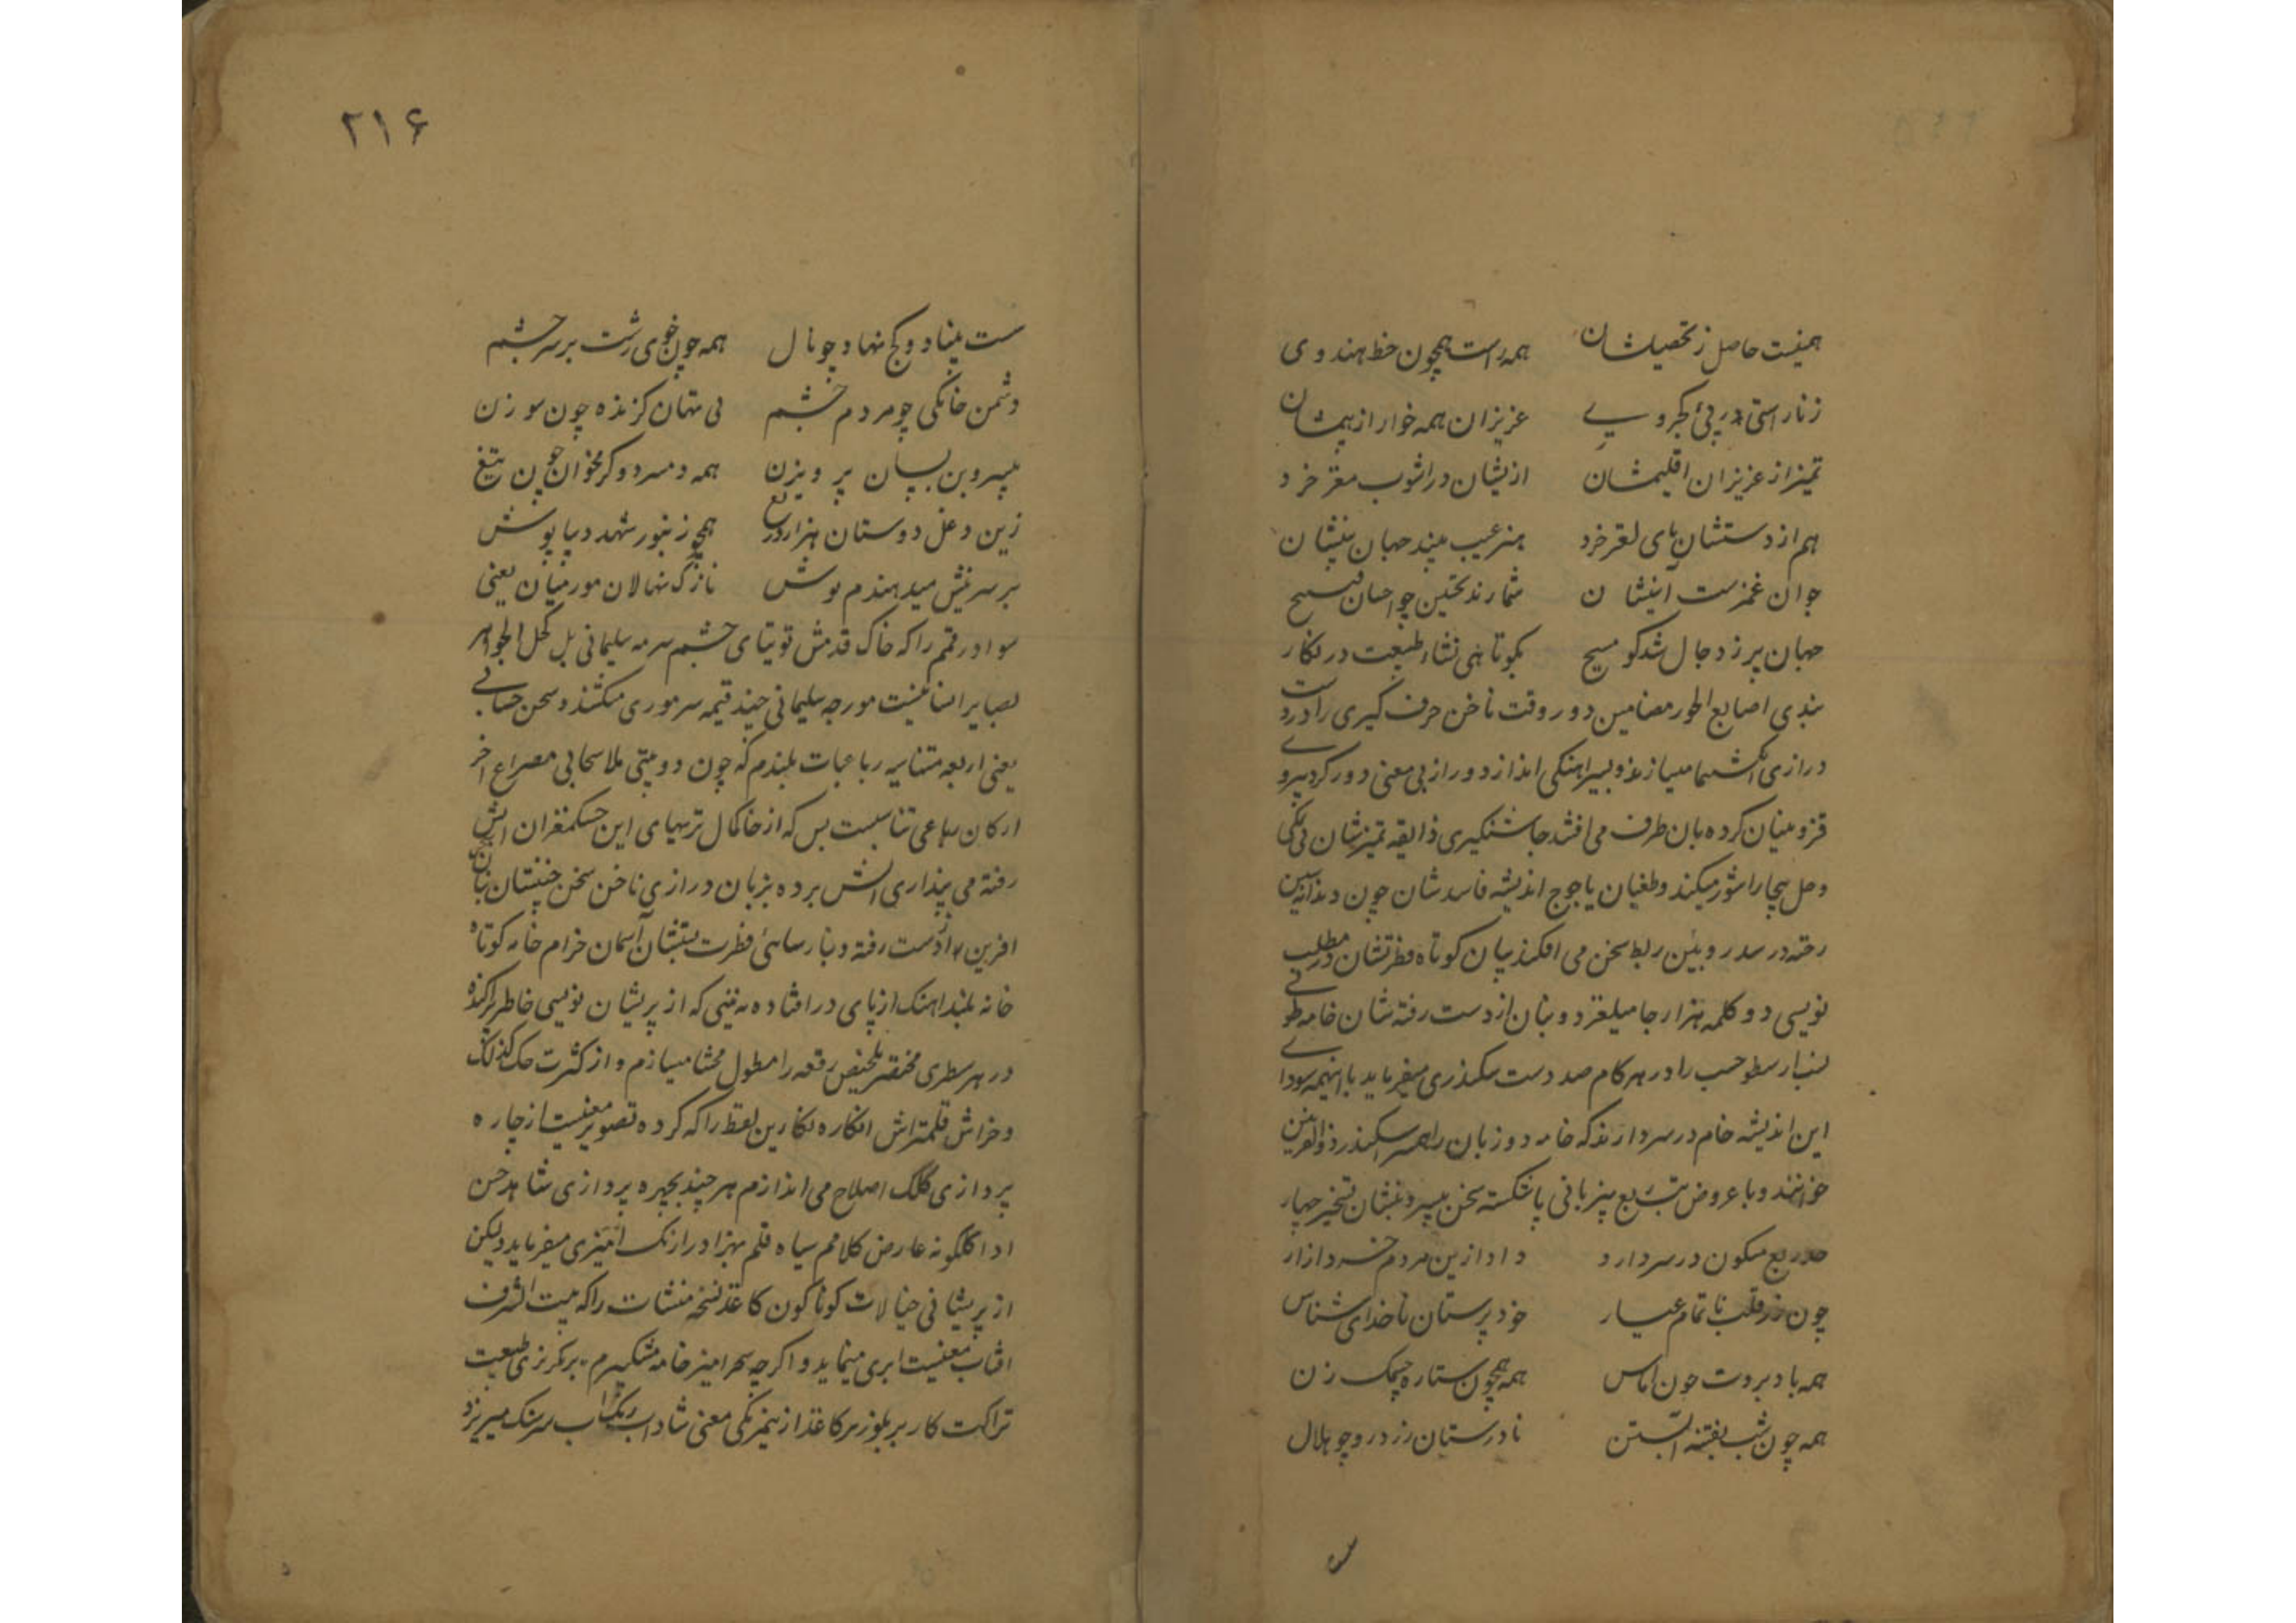 همینست حاصل ز تحصیلشان همه راست همچون خط هندوی
ز ناراستی در پی کجروی عزیزان همه خوار از پیششان
تمیز از عزیزان اقلیمشان ازیشان در آشوب مغز خرد
هم از دستشان پای لغز خرد هنر عیب بیند جهان بینشان
جوان غمزست آئینشان شمارند تحسین چو احسان قبیح
جهان پر ز دجال شد کو مسیح بکوتاهی نشاء طبیعت در نگار
بندی اصابع اطور مضامین دور وقت ناخن حرف گیری را درد است
درازی انگشتها میسازند و بسیر اهنگی انداز دور از بی معنی دور کرد پیروی
قزوینیان کرده بان طرف می افتد چاشنیگیری ذایقه تمیزشان بی نمکی
و حل بیجا را شور میکند و طغیان یاجوج اندیشه فاسدشان چون دندانه سین
رخنه در سد روئین ربط سخن می افکند بیان کوتاه فطرتشان در مطلب
نویسی دو کلمه هزار جا میلغزد و بنان از دست رفته شان خامه طوفی
ارسطو حسب را در هر کام صد دست سکندری میفرماید با اینهمه سودای
این اندیشه خام در سر دارند که خامه دو زبان را همسر اسکندر ذوالقرنین
خوانند و با عروض تتبع بیزبانی پا شکسته سخن بیسر و بنشان تسخیر چهار
ربع مسکون در سر دارد داد ازین مردم خرد ازار
چون زر قلب ناتمام عیار خود پرستان ناخدای شناس
همه باد بروت چون اماس همه همچون ستاره چمک زن
همه چون شب بفتنه آبستن نادرستان زرد رو چو هلال
۲۱۶
سست بنیاد و کج نهاد چو نال همه چون خوی زشت بر سر خشم
دشمن خانگی چو مردم چشم بی متهان گزنده چون سوزن
بی سر و بن بسان پرویزن همه دم سرد و گرمخوان چون تیغ
زین دغل دوستان هزار دریغ همچو زنبور شهد دیبا پوش
بر سر نیش میدهندم نوش نازک نهالان مور میان یعنی
سواد رقمم را که خاک قدمش توتیای چشم سرمه سلیمانی بل کحل الجواهر
بصایر انسانیست مورچه سلیمانی چند قیمه سر موری میکشند و سخن حسابی
یعنی اربعه متناسبه رباعیات بلندم که چون دو بیتی ملا سحابی مصراع آخر
ارکان رباعی تناسبست بس که از خاکمال تریهای این خشکمغزان آبش
رفته می پنداری آتش برده بزبان درازی ناخن سخن چینشان بنان سخن
افرین از دست رفته و بنارسائی فطرت پستشان آسمان خرام خامه کوتاه
خانه بلند اهنک از پای در افتاده نه بینی که از پریشان نویسی خاطر پراکنده
در هر سطری مختصر تلخیص رقعه را مطول محشا میسازم و از کثرت حک گزلک
و خراش قلمتراش انکاره نکارین لفظ را که کرده تصویر معنیست از چاره
پردازی کلک اصلاح می اندازم هر چند بچهره پردازی شاهد حسن
ادا گلگونه عارض کلامم سیاه قلم بهزاد را رنگ امیزی میفرماید لیکن
از پریشانی خیالات گوناگون کاغذ نسخه منشات را که بیت الشرف
افتاب معنیست ابری مینماید و اگرچه سحر آمیز خامه مشکینم برگریزی طبیعت
نزاکت کار بر بلورین کاغذ از نیرنگی معنی شاداب رنگ آب بر سنگ میریزد